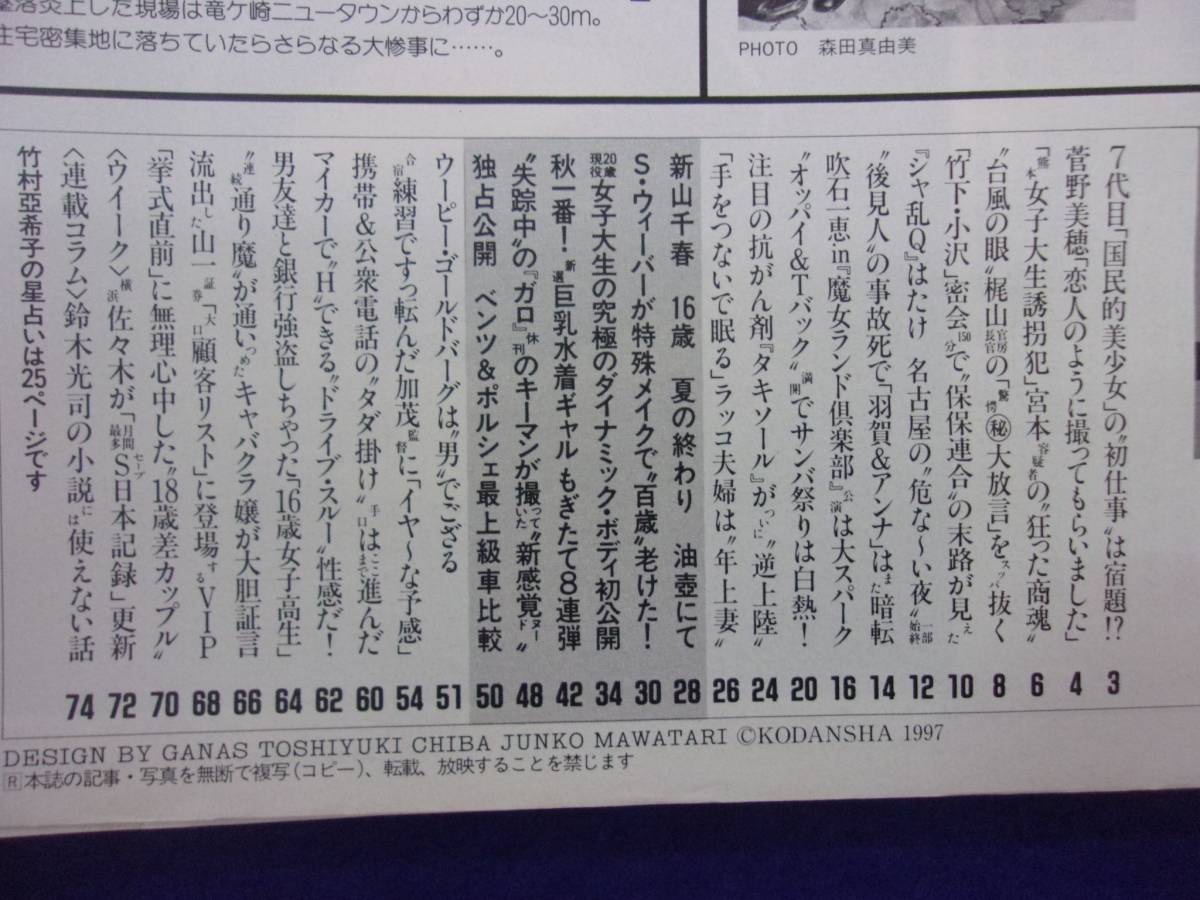 墜落炎上した現場は竜ケ崎ニュータウンからわずか20〜30m。
住宅密集地に落ちていたらさらなる大惨事に……。
PHOTO 森田真由美
7代目「国民的美少女」の〝初仕事〟は宿題!? 3
菅野美穂「恋人のように撮ってもらいました」 4
「熊本女子大生誘拐犯」宮本容疑者の〝狂った商魂〟 6
〝台風の眼〟梶山官房長官の「驚愕㊙大放言」をスッパ抜く 8
「竹下・小沢」密会150分で〝保保連合〟の末路が見えた 10
『シャ乱Q』はたけ 名古屋の〝危な〜い夜〟一部始終 12
〝後見人〟の事故死で「羽賀&アンナ」はまた暗転 14
吹石一恵in『魔女ランド倶楽部』公演は大スパーク 16
〝オッパイ&Tバック〟満開でサンバ祭りは白熱! 20
注目の抗がん剤『タキソール』がついに〝逆上陸〟 24
「手をつないで眠る」ラッコ夫婦は〝年上妻〟 26
新山千春 16歳 夏の終わり 油壺にて 28
S・ウィーバーが特殊メイクで〝百歳〟老けた! 30
20歳現役女子大生の究極のダイナミック・ボディ初公開 34
秋一番! 新選巨乳水着ギャル もぎたて8連弾 42
〝失踪中〟の『ガロ』休刊のキーマンが撮っていた〝新感覚ヌード〟 48
独占公開 ベンツ&ポルシェ最上級車比較 50
ウーピー・ゴールドバーグは〝男〟でござる 51
合宿練習ですっ転んだ加茂監督に「イヤ〜な予感」 54
携帯&公衆電話の〝タダ掛け〟手口はここまで進んだ 60
マイカーで〝H〟できる〝ドライブ・スルー〟性感だ! 62
男友達と銀行強盗しちゃった「16歳女子高生」 64
〝連続通り魔〟が通いつめたキャバクラ嬢が大胆証言 66
流出した山一証券「大口顧客リスト」に登場するVIP 68
「挙式直前」に無理心中した〝18歳差カップル〟 70
〈ウイーク〉横浜佐々木が「月間最多Sセーブ日本記録」更新 72
〈連載コラム〉鈴木光司の小説には使えない話 74
竹村亞希子の星占いは25ページです
DESIGN BY GANAS TOSHIYUKI CHIBA JUNKO MAWATARI ©KODANSHA 1997
R本誌の記事・写真を無断で複写(コピー)、転載、放映することを禁じます